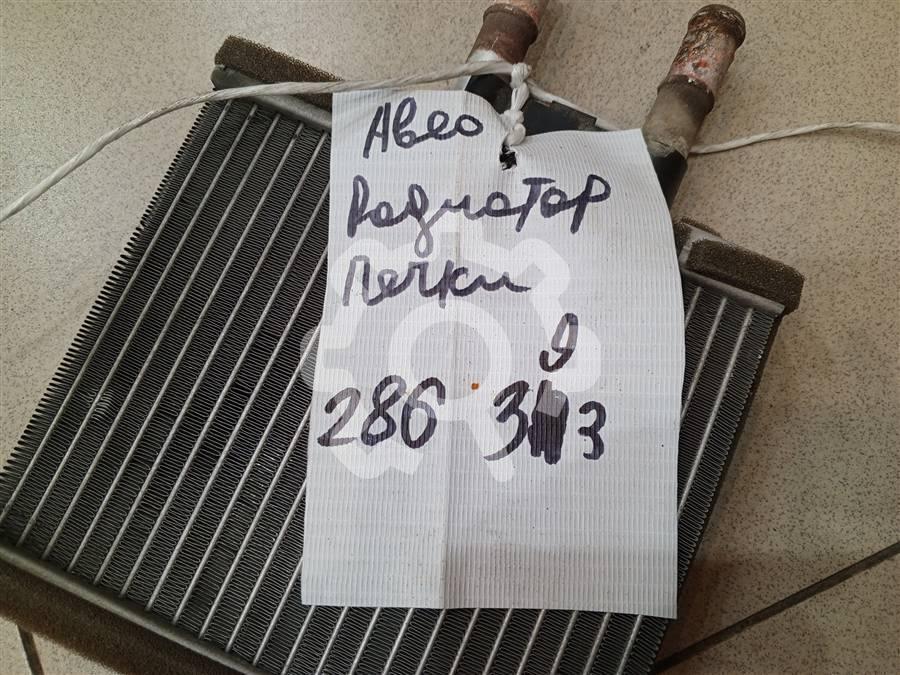 Авео
Радиатор
Печки
9
286 3 3